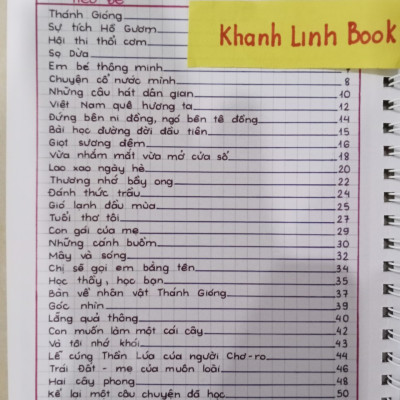 TIÊU ĐỀ
Khanh Linh Book
Thánh Gióng
Sự tích Hồ Gươm
Hội thi thổi cơm
Sọ Dừa
Em bé thông minh
Chuyện cổ nước mình 8
Những câu hát dân gian 10
Việt Nam quê hương ta 12
Đứng bên ni đồng, ngó bên tê đồng 14
Bài học đường đời đầu tiên 15
Giọt sương đêm 16
Vừa nhắm mắt vừa mở cửa sổ 18
Lao xao ngày hè 20
Thương nhớ bầy ong 22
Đánh thức trầu 24
Gió lạnh đầu mùa 25
Tuổi thơ tôi 27
Con gái của mẹ 29
Những cánh buồm 30
Mây và sóng 32
Chị sẽ gọi em bằng tên 34
Học thầy, học bạn 35
Bàn về nhân vật Thánh Gióng 37
Góc nhìn 39
Lẵng quả thông 40
Con muốn làm một cái cây 42
Và tôi nhớ khói 43
Lễ cúng Thần Lúa của người Chơ-ro 44
Trái Đất - mẹ của muôn loài 46
Hai cây phong 48
Kể lại một câu chuyện đã học 50